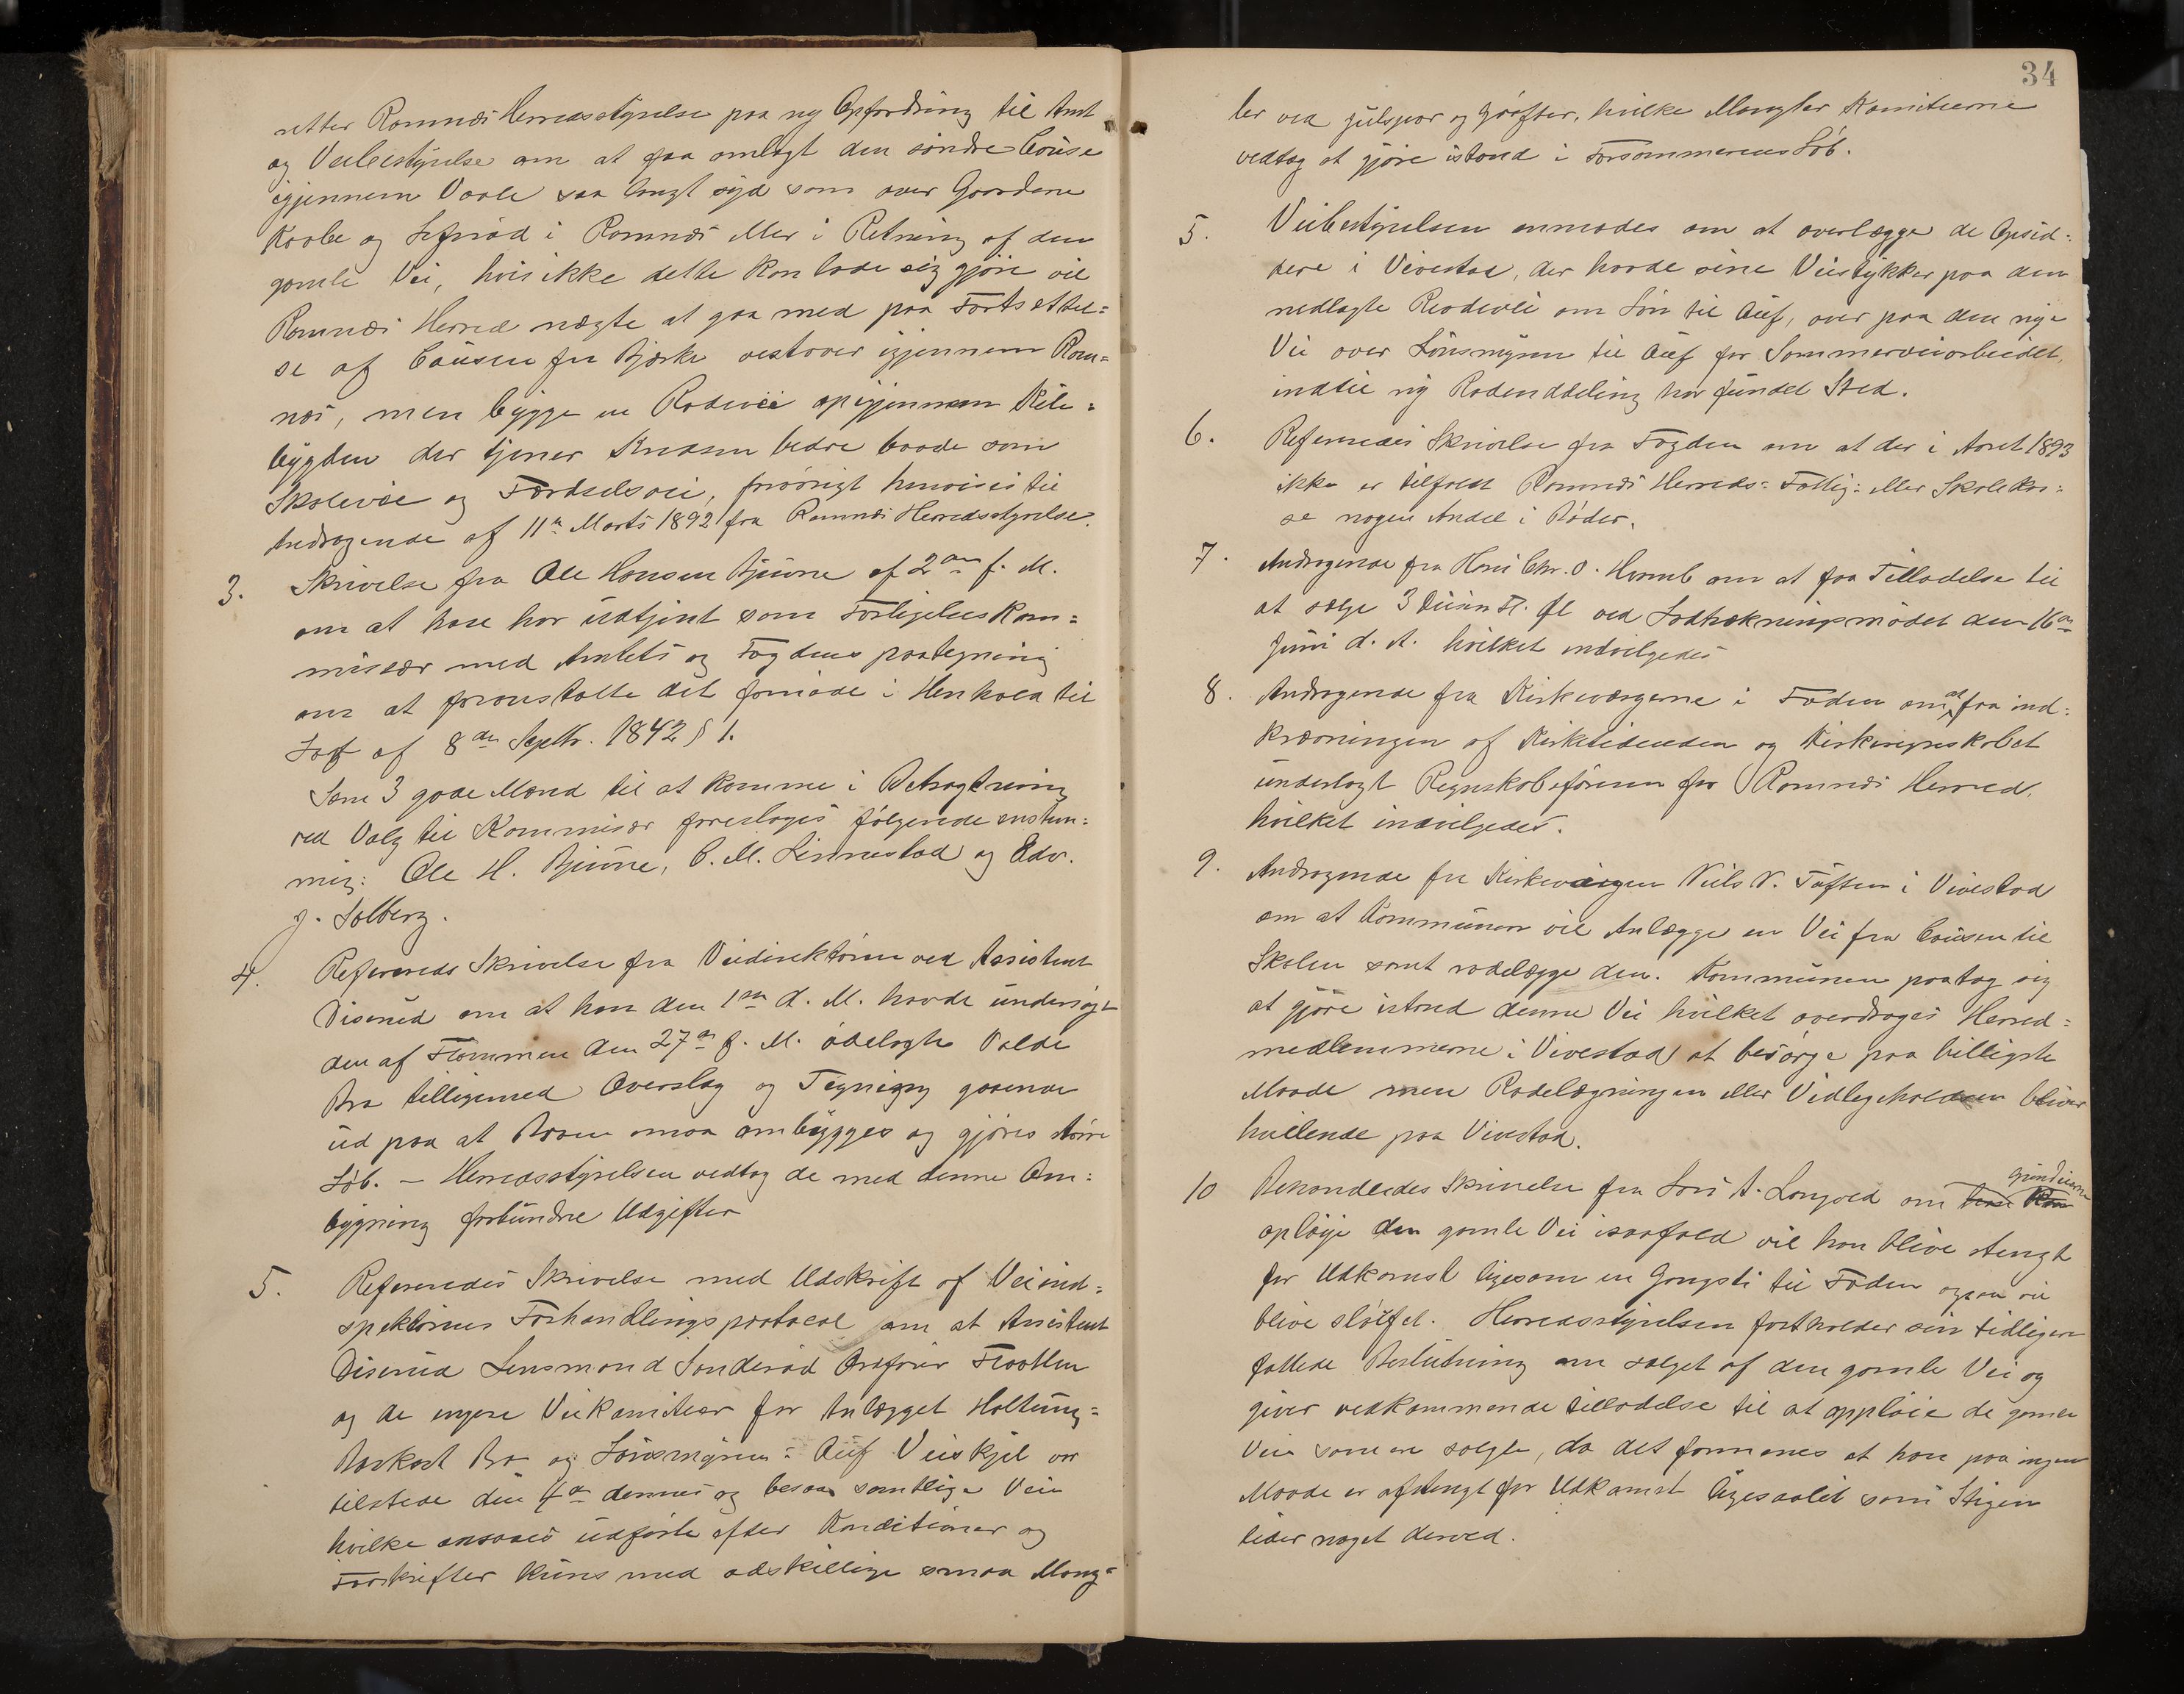 retter Ramnæs Herredsstyrelse paa ny Opfordring til Amt
og Veibestyrelse om at faa omlagt den søndre Cause
igjennem Vaale saa langt syd som over Gaardene
og i Ramnæs eller i Retning af den
gamle Vei, hvis ikke dette kan lade sig gjøre vil
Ramnæs Herred nægte at gaa med paa Fortsættel=
se af Causeen fra Bjerke vestover igjennem Ram=
næs, men bygge en Rodevei op igjennem Kile=
bygden der tjener Kredsen bedre baade som
Skolevei og Færdselsvei, forøvrigt henvises til
Andragende af 11te Marts 1892 fra Ramnæs Herredsstyrelse.
3. Skrivelse fra Ole Hansen Bjuine af 2den f. M.
om at have har udtjent som Forligelseskom=
misær med Amtets og Fogdens paategning
om at foranstalte det fornøde i Henhold til
Lov af 8de Septbr. 1842 § 1.
Som 3 gode Mænd til at komme i Betragtning
ved Valg til Kommisær foreslages følgende enstem=
mig: Ole H. Bjuine, C. M. Linnestad og Edv.
J. Solberg.
4. Refereredes Skrivelse fra Veidirektøren ved Assistent
Diserud om at han den 1ste d. M. havde undersøgt
den af Flommen den 27de f. M. ødelagte Valde
Bro tilligemed Overslag og Tegning gaaende
ud paa at Broen maa ombygges og gjøres større
Løb. — Herredsstyrelsen vedtog de med denne Om=
bygning forbundne Udgifter
5. Refereredes Skrivelse med Udskrift af Veiind=
spektørens Forhandlingsprotocol om at Assistent
Diserud Lensmand Sanderød Ordfører Flaatten
og de øvrige Veikomiteer for Anlægget Holtung=
Bro og Lønsmyren= Auf Veiskjel var
tilstede den 4de dennes og besaa samtlige Veie
hvilke ansaaes udførte efter Konditioner og
Forskrifter kuns med adskillige smaa Mang=
34
ler ved Julspor og Grøfter, hvilke Mangler Komiteerne
vedtog at gjøre istand i Forsommerens Løb.
5. Veibestyrelsen anmodes om at overlægge de Opsid=
dere i Vivestad, der havde sine Veistykker paa den
nedlagte Rodevei om Løn til Auf, over paa den nye
Vei over Lønsmyren til Auf for Sommerveiarbeidet,
indtil ny Rodeinddeling har fundet Sted.
6. Refereredes Skrivelse fra Fogden om at der i Aaret 1893
ikke er tilfaldt Ramnæs Herreds= Fattig= eller Skolekas=
se nogen Andel i Bøder.
7. Andragende fra Hans Chr. O. Hvamb om at faa Tilladelse til
at sælge 3 Dusin Fl. Øl ved Lodtrækningsmødet den 16de
Juni d. A. hvilket indvilgedes
8. Andragende fra Kirkeværgerne i Foden om at faa ind=
krævningen af Kirketienden og Kirkeregnskabet
underlagt Regnskabsføreren for Ramnæs Herred.
hvilket indvilgedes.
9. Andragende fra Kirkeværgen Niels N. Tuften i Vivestad
om at Kommunen vil Anlægge en Vei fra Causeen til
Skolen samt rodelægge den. Kommunen paatog sig
at gjøre istand denne Vei hvilket overdrages Herred=
medlemmerne i Vivestad at besørge paa billigste
Maade men Rodelægningen eller Vedligeholdelsen bliver
hvilende paa Vivestad.
10 Behandledes Skrivelse fra Lars A. Langved om grundeierne
opløie den gamle Vei isaafald vil han blive stengt
for Udkomst ligesom en Gangsti til Foden ogsaa vil
blive sløifet. Herredsstyrelsen fastholder sin tidligere
fattede Beslutning om salget af den gamle Vei og
giver vedkommende tilladelse til at oppløie de gamle
Veie som ere solgte, da det formenes at han paa ingen
Maade er afstengt for Udkomst ligesaalidt som Stigen
lider noget derved.